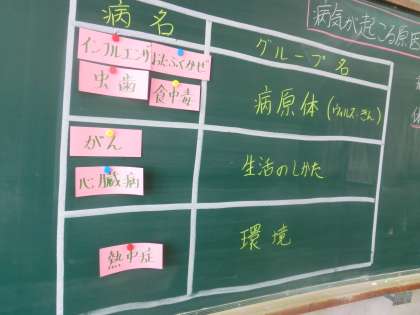 病気が起こる原因
病名
グループ名
インフルエンザ
おたふくかぜ
虫歯
食中毒
病原体(ウィルス・きん)
がん
心臓病
生活のしかた
熱中症
環境